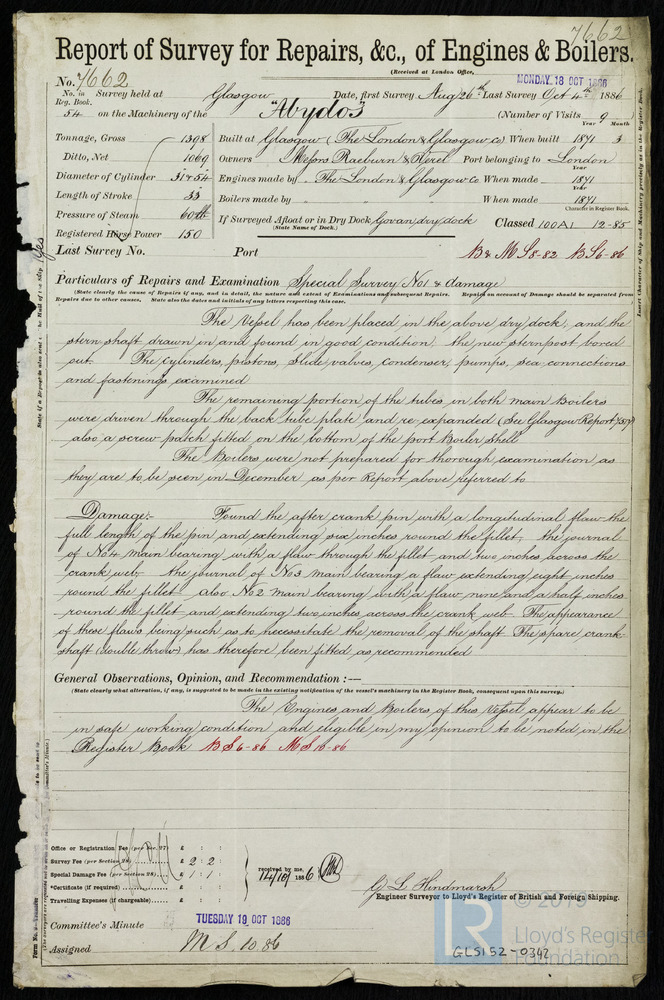 7662
Report of Survey for Repairs, &c., of Engines & Boilers.
(Received at London Office, MONDAY 18 OCT 1886
No. 7662
No. in Survey held at Glasgow Date, first Survey Aug 26th Last Survey Oct 4th 1886
Reg. Book.
54 on the Machinery of the "Abydos" (Number of Visits 9
Year Month
Tonnage, Gross 1398 Built at Glasgow (The London & Glasgow Co) When built 1871 3
Ditto, Net 1069 Owners Messrs Raeburn & Verel Port belonging to London
Year
Diameter of Cylinder 31 & 54 Engines made by The London & Glasgow Co. When made 1871
Year
Length of Stroke 33 Boilers made by When made 1871
Pressure of Steam 60 lb If Surveyed Afloat or in Dry Dock Govan dry dock Character in Register Book.
(State Name of Dock.) Classed 100A1 12-85
Registered Horse Power 150
Last Survey No. Port B & MS 8-82 BS 6-86
Particulars of Repairs and Examination Special Survey No 1 & damage
(State clearly the cause of Repairs if any, and, in detail, the nature and extent of Examinations and subsequent Repairs. Repairs on account of Damage should be separated from
Repairs due to other causes. State also the dates and initials of any letters respecting this case.
The Vessel has been placed in the above dry dock, and the
stern shaft drawn in and found in good condition, the new sternpost bored
out. The cylinders, pistons, slide valves, condenser, pumps, sea connections
and fastenings examined
The remaining portion of the tubes in both main Boilers
were driven through the back tube plate and re-expanded (See Glasgow Report
also a screw patch fitted on the bottom of the port Boiler shell
The Boilers were not prepared for thorough examination as
they are to be seen in December as per Report above referred to
Damage:- Found the after crank pin with a longitudinal flaw the
full length of the pin and extending six inches round the fillet, the journal
of No 4 main bearing with a flaw through the fillet and two inches across the
crank web, the journal of No 3 main bearing a flaw extending eight inches
round the fillet also No 2 main bearing with a flaw nine and a half inches
round the fillet and extending two inches across the crank web. The appearance
of these flaws being such as to necessitate the removal of the shaft. The spare crank
shaft (double throw) has therefore been fitted as recommended
General Observations, Opinion, and Recommendation :—
(State clearly what alteration, if any, is suggested to be made in the existing notification of the vessel's machinery in the Register Book, consequent upon this survey.)
The Engines and Boilers of this Vessel appear to be
in safe working condition and eligible in my opinion to be noted in the
Register Book BS 6-86 MS 10-86
Office or Registration Fee (per Sec. 27) £ : :
Survey Fee (per Section 28) £ 2 : 2 :
Special Damage Fee (per Section 28) £ 1 : 1 :
*Certificate (if required) £ : :
Travelling Expenses (if chargeable) £ : :
received by me,
14/10/1886
G. L. Hindmarsh
Engineer Surveyor to Lloyd's Register of British and Foreign Shipping.
Committee's Minute TUESDAY 19 OCT 1886
Assigned MS. 10.86
© 2019
Lloyd's Register
Foundation
GLS152-0342